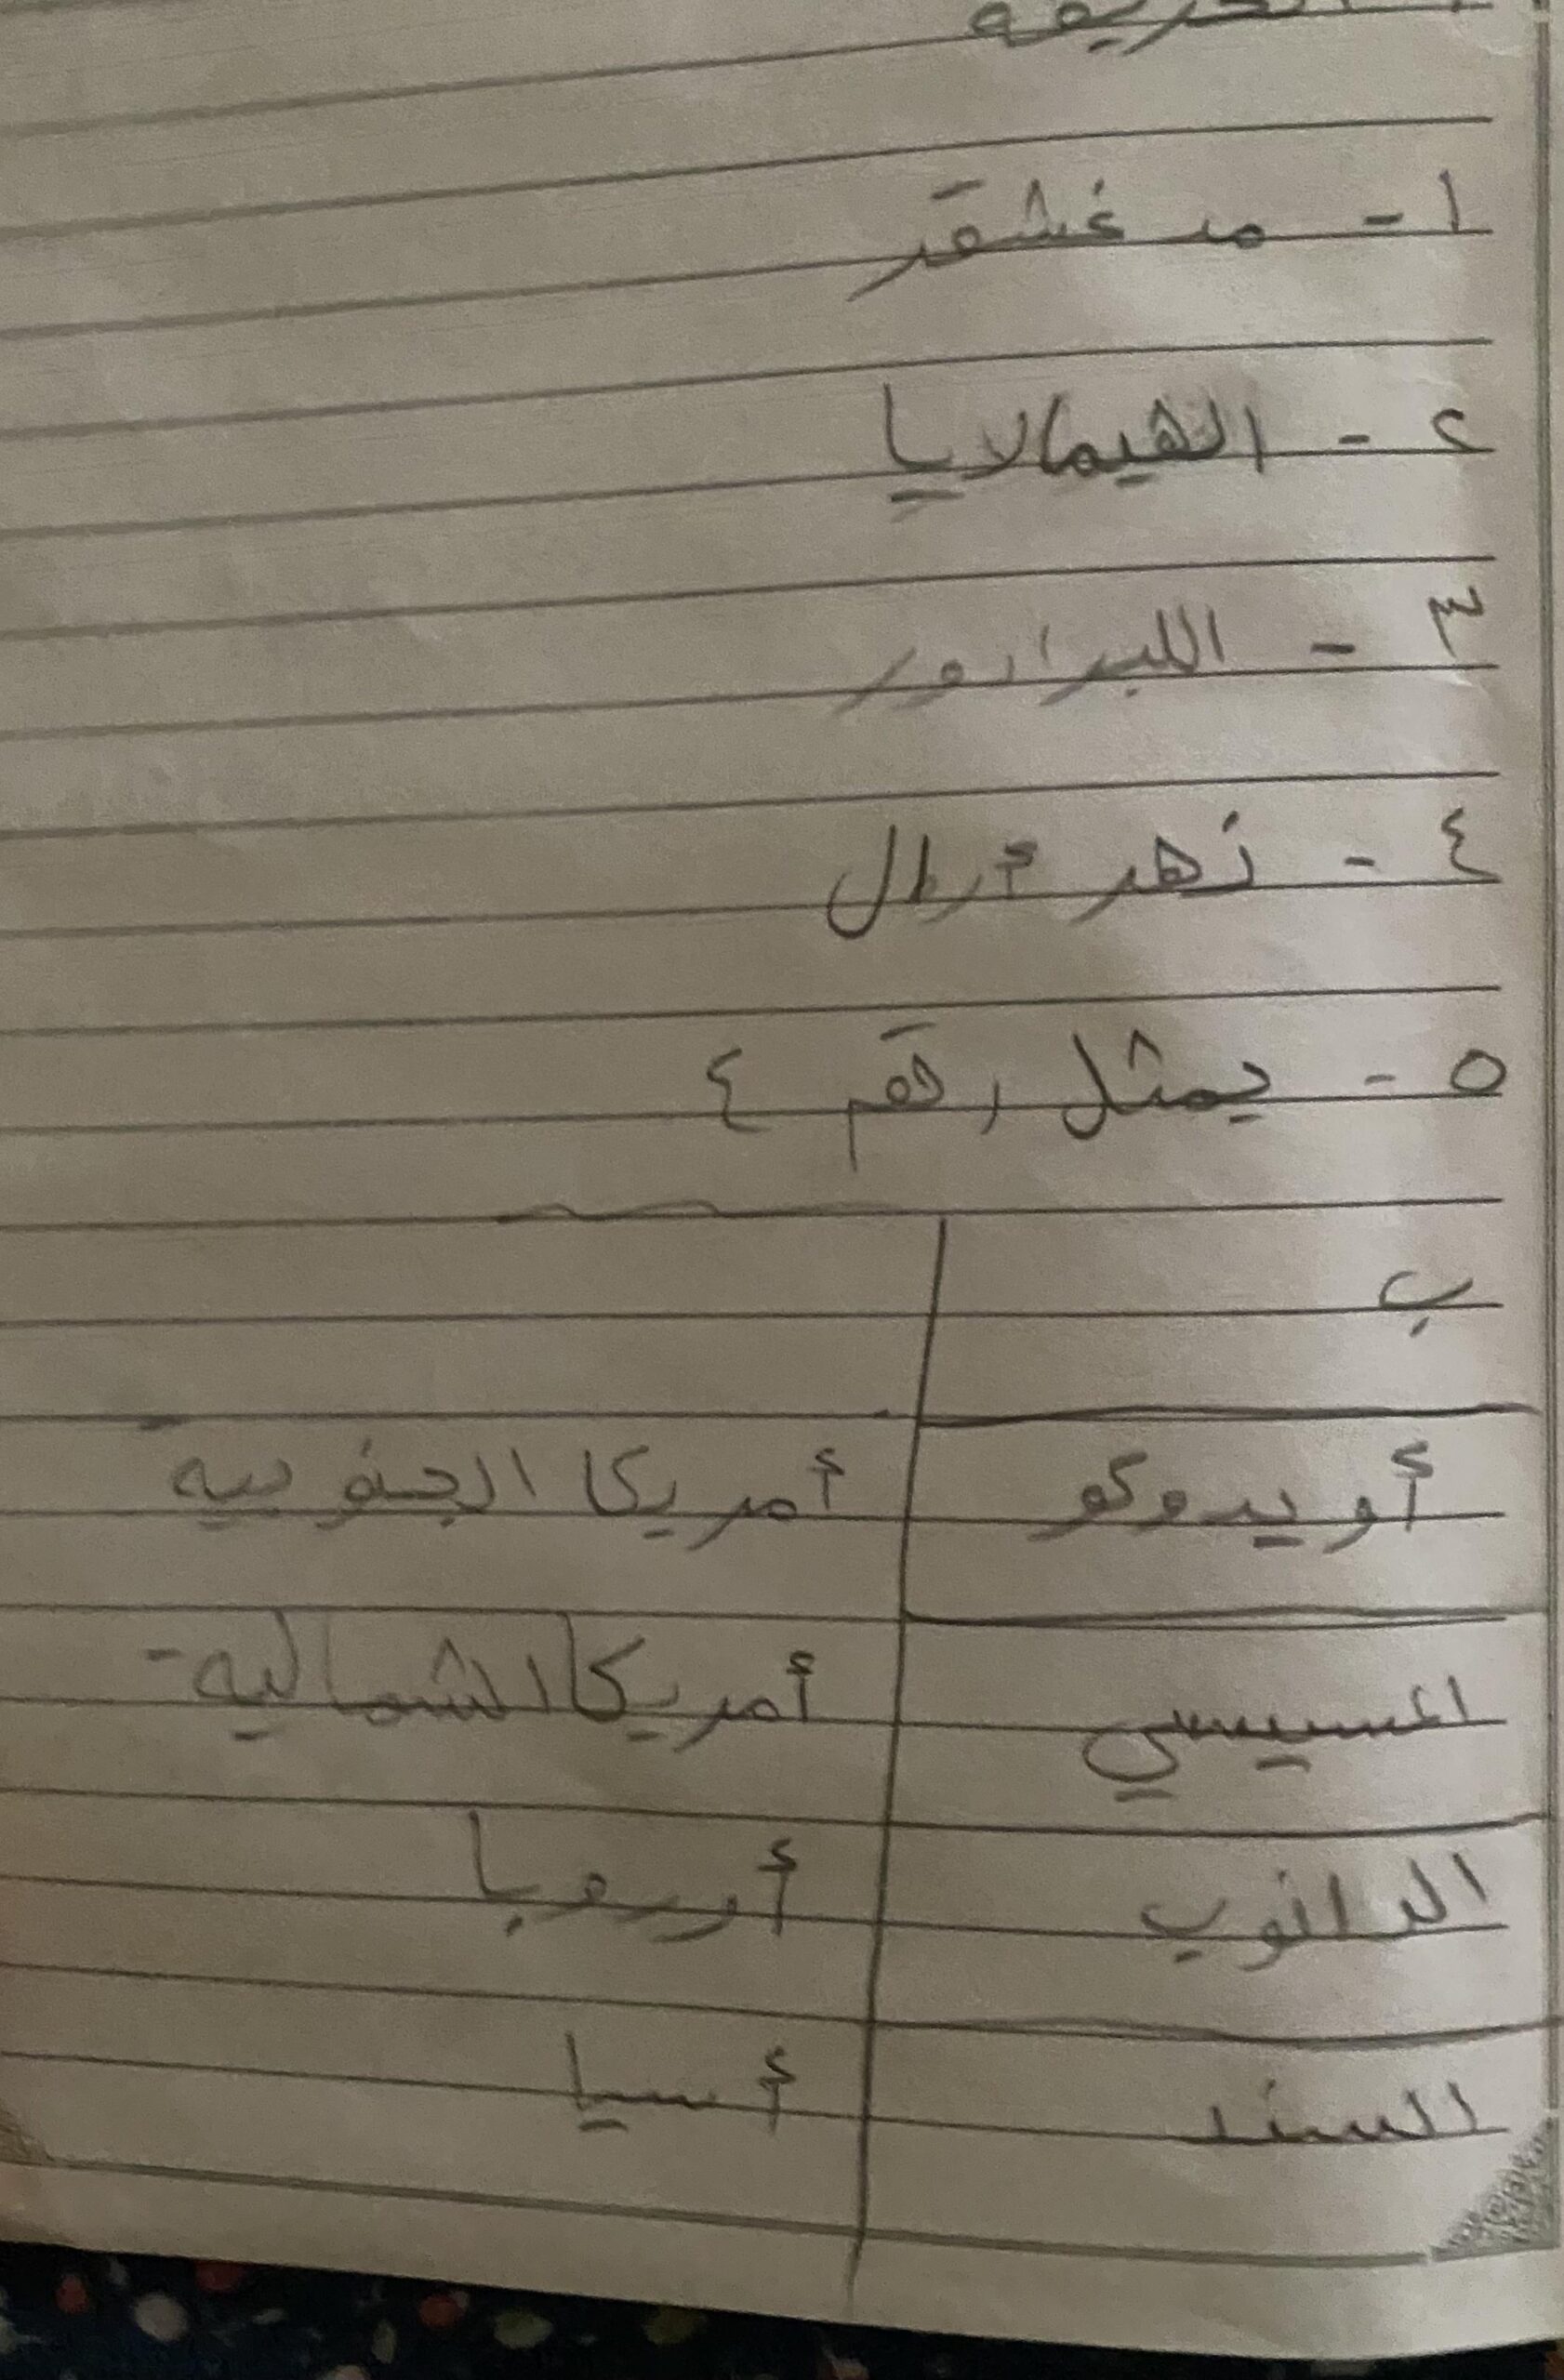 الخريطة
١- مدغشقر
٢- الهيمالايا
٣- اللبرادور
٤- نهر أرال
٥- يمثل رقم ٤
ب
أويدوكو أمريكا الجنوبية
المسيسي أمريكا الشمالية
الدانوب أوروبا
السند أسيا